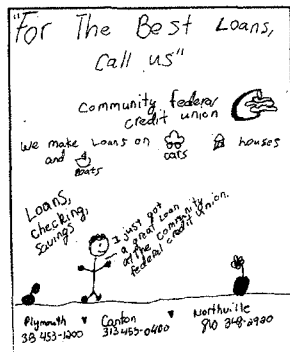 "For The Best Loans,
Call us"
Community federal
credit union
We make Loans on cars houses
and boats
Loans,
checking,
savings
I just got
a great Loan
at the community
federal credit union.
Plymouth Canton Northville
313 453-1200 313 455-0400 810 348-2920